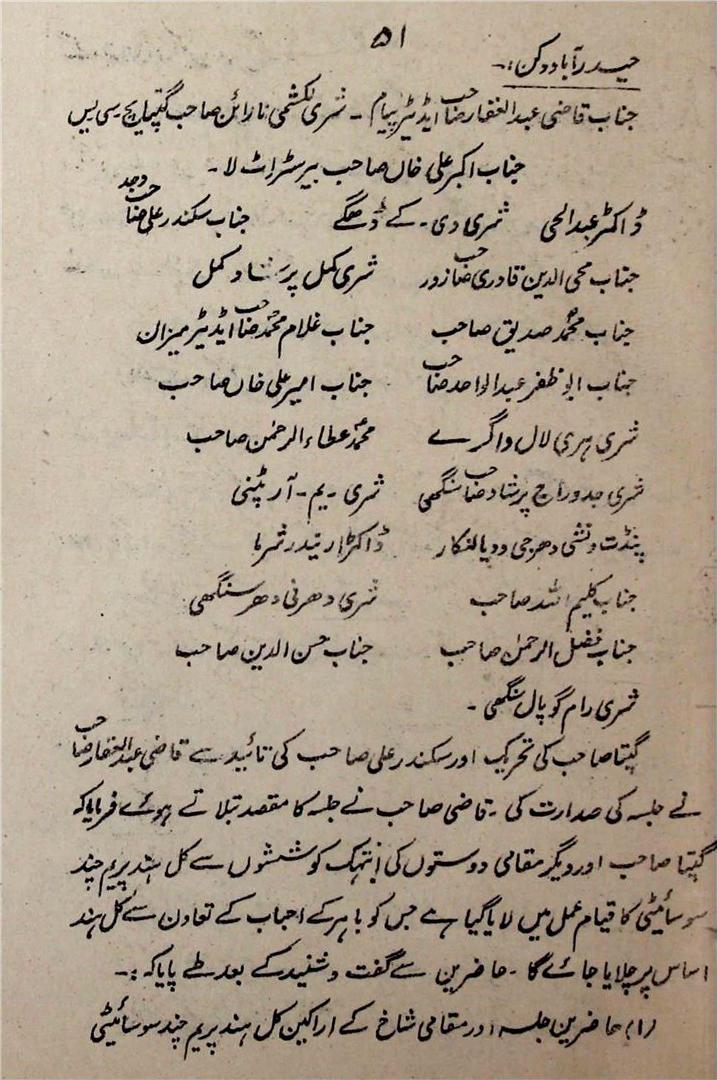 ۵۱
حیدرآباد دکن :۔
جناب قاضی عبدالغفار صاحب ایڈیٹر پیام ۔ شری لکشمی نارائن صاحب گپتا یچ سی یس
جناب اکبر علی خاں صاحب بیرسٹراٹ لا ۔
ڈاکٹر عبدالحی شری دی ۔ کے ڈھگے جناب سکندر علی صاحب وجد
جناب محی الدین قادری صاحب زور شری کمل پرشاد کمل
جناب محمد صدیق صاحب جناب غلام محمد صاحب ایڈیٹر میزان
جناب ابو ظفر عبدالواحد صاحب جناب امیر علی خاں صاحب
شری ہری لال واگرے محمد عطاء الرحمٰن صاحب
شری جدوراج پرشاد صاحب سنگھی شری ۔ یم ۔ آر پٹنی
پنڈت ونشی دھر جی ودیالنکار ڈاکٹر شرما
جناب کلیم اللہ صاحب شری دھرنی دھر سنگھی
جناب فضل الرحمٰن صاحب جناب حسن الدین صاحب
شری رام گوپال سنگھی ۔
گپتا صاحب کی تحریک اور سکندر علی صاحب کی تائید سے قاضی عبدالغفار صاحب
نے جلسہ کی صدارت کی ۔ قاضی صاحب نے جلسہ کا مقصد بتلاتے ہوئے فرمایا کہ
گپتا صاحب اور دیگر مقامی دوستوں کی انتھک کوششوں سے کل ہند پریم چند
سوسائیٹی کا قیام عمل میں لایا گیا ہے جس کو باہر کے احباب کے تعاون سے کل ہند
اساس پر چلایا جائے گا ۔ حاضرین سے گفت و شنید کے بعد طے پایا کہ :۔
(۱) حاضرین جلسہ اور مقامی شاخ کے اراکین کل ہند پریم چند سوسائیٹی